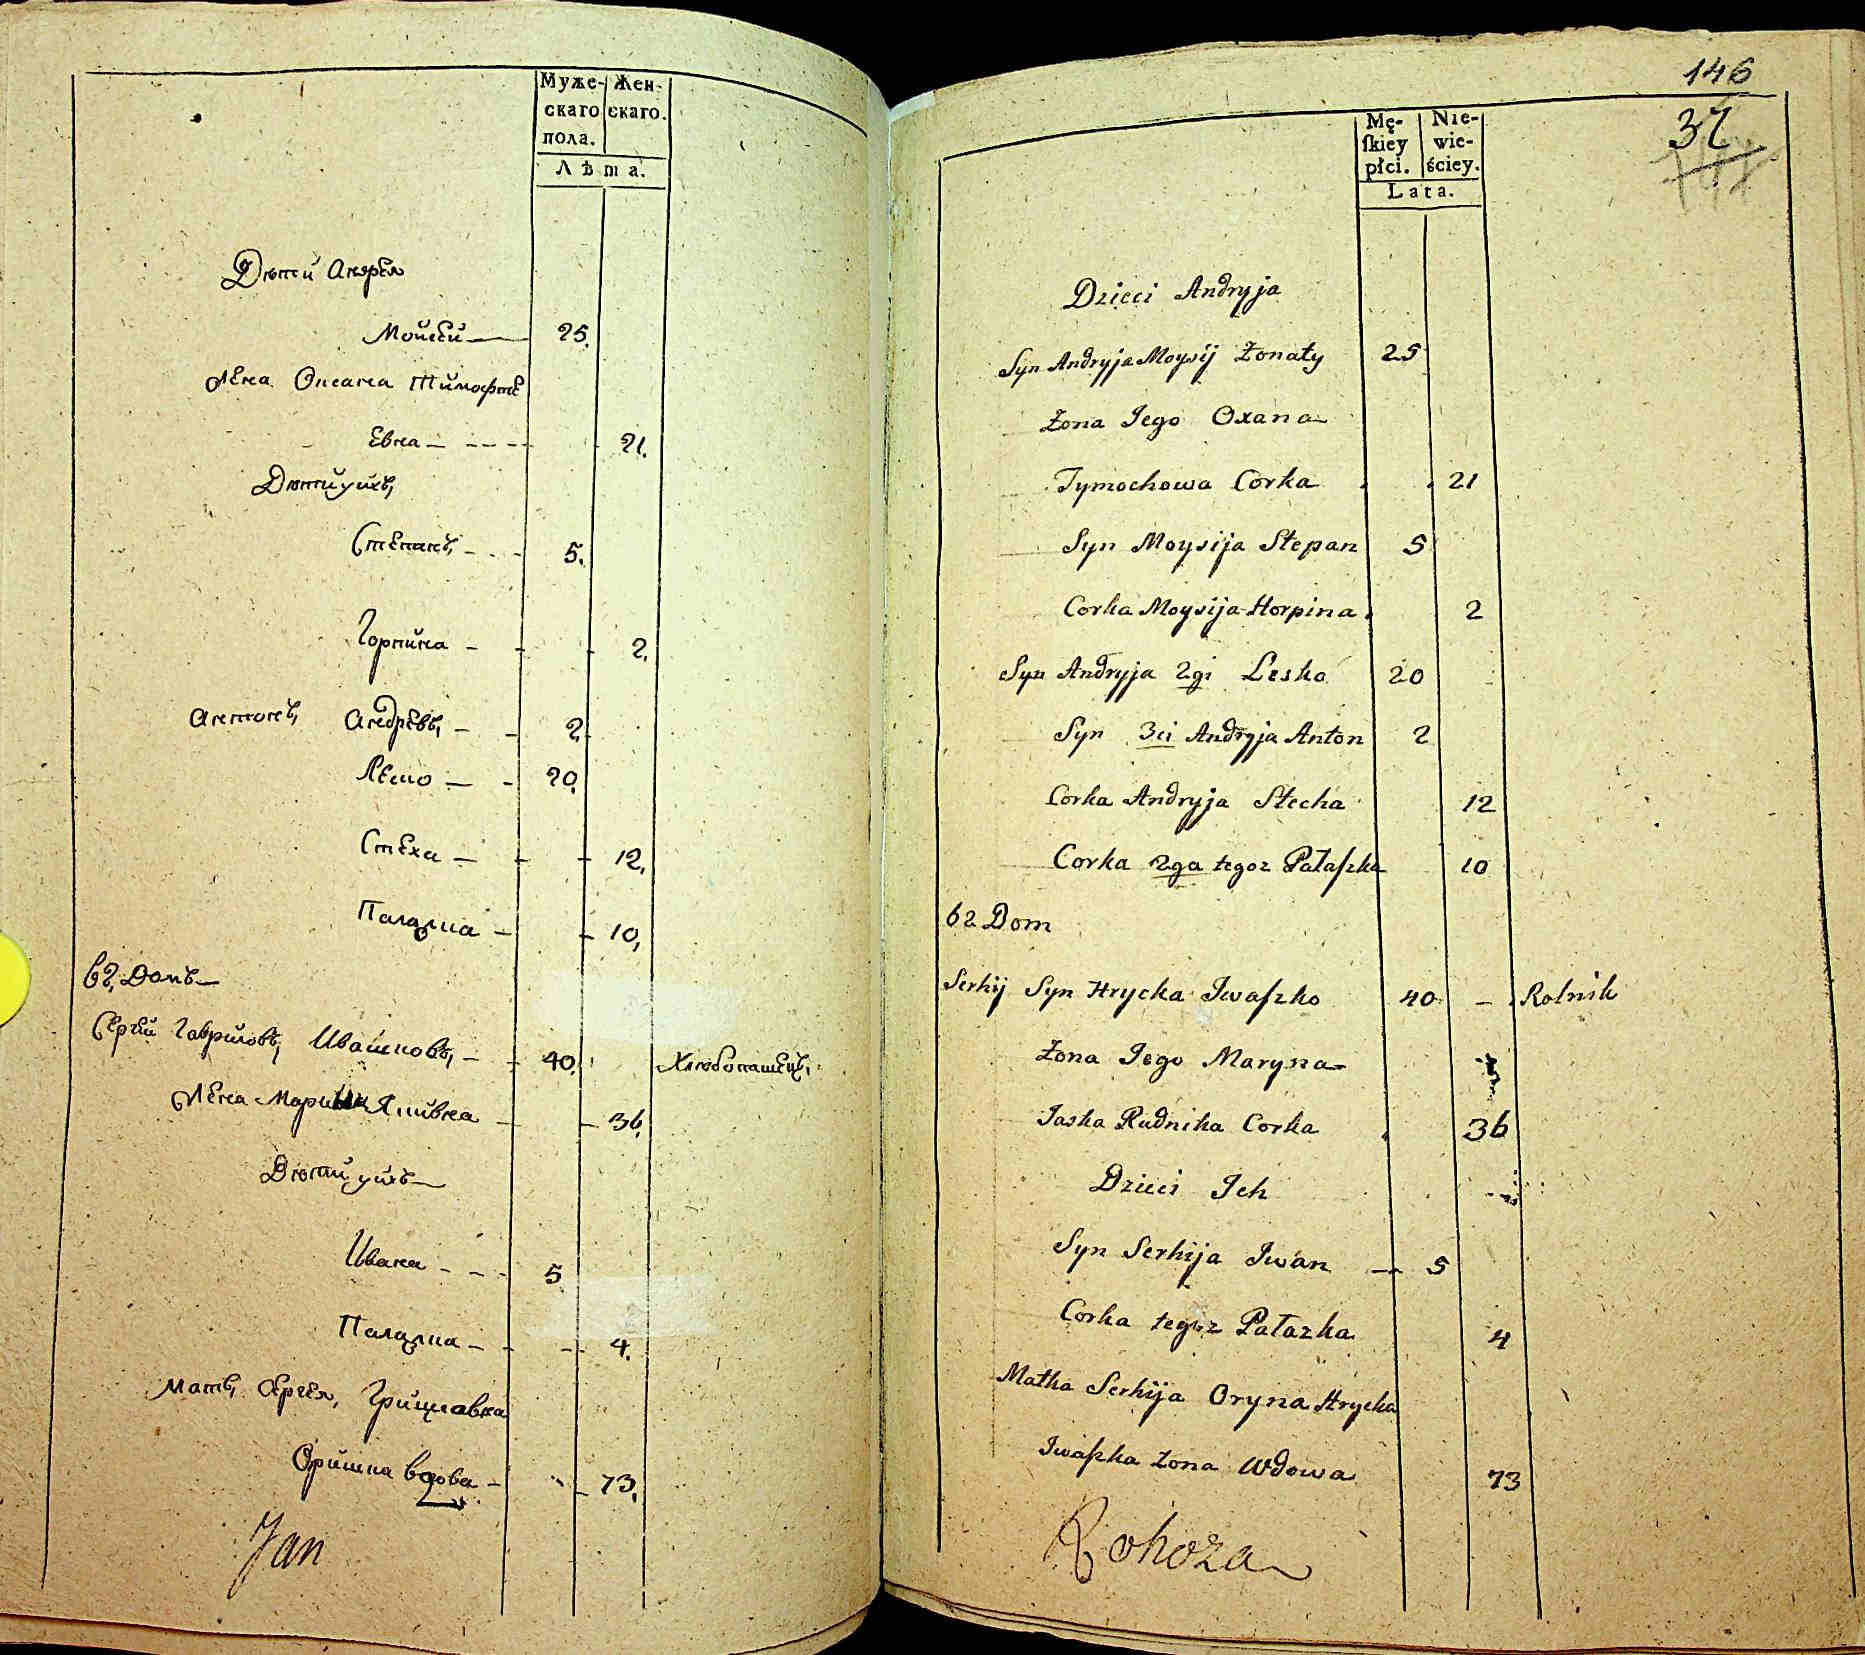 Муже- Жен-
скаго скаго.
пола.
Лѣта.
Дѣти Андрея
Мойсей — 25.
Жена Оксана Тимофѣ
Евна — 21.
Дѣти ихъ,
Степанъ, 5.
Горпина — 2.
Антонъ, Андрѣевъ, — 2.
Леско — 20,
Стеха — 12,
Палажка — 10,
62, Домъ
Сергій Гавриловъ, Ивашковъ, — 40, Хлѣбопашецъ,
Жена Марина Яшивна — 36,
Дѣти ихъ
Ивана — 5
Палажка — 4.
Мать, Сергея, Грицкавна
Оришка вдова — 73,
Jan
146
37
Mę- Nie-
ſkiey wie-
płci. ściey.
Lata.
Dzieci Andryja
Syn Andryja Moysij Żonaty 25
Żona Jego Oxana
Tymochowa Corka 21
Syn Moysija Stepan 5
Corka Moysija Horpina 2
Syn Andryja 2gi Lesko 20
Syn 3ci Andryja Anton 2
Corka Andryja Stecha 12
Corka 2ga tegoz Pałaſzka 10
62 Dom
Serhij Syn Hrycka Iwaſzko 40 — Rolnik
Żona Jego Maryna
Jaska Rudnika Corka 36
Dzieci Ich
Syn Serhija Iwan — 5
Corka tegoz Pałazka 4
Matka Serhija Oryna Hrycka
Iwaſzka Żona Wdowa 73
Rohoza